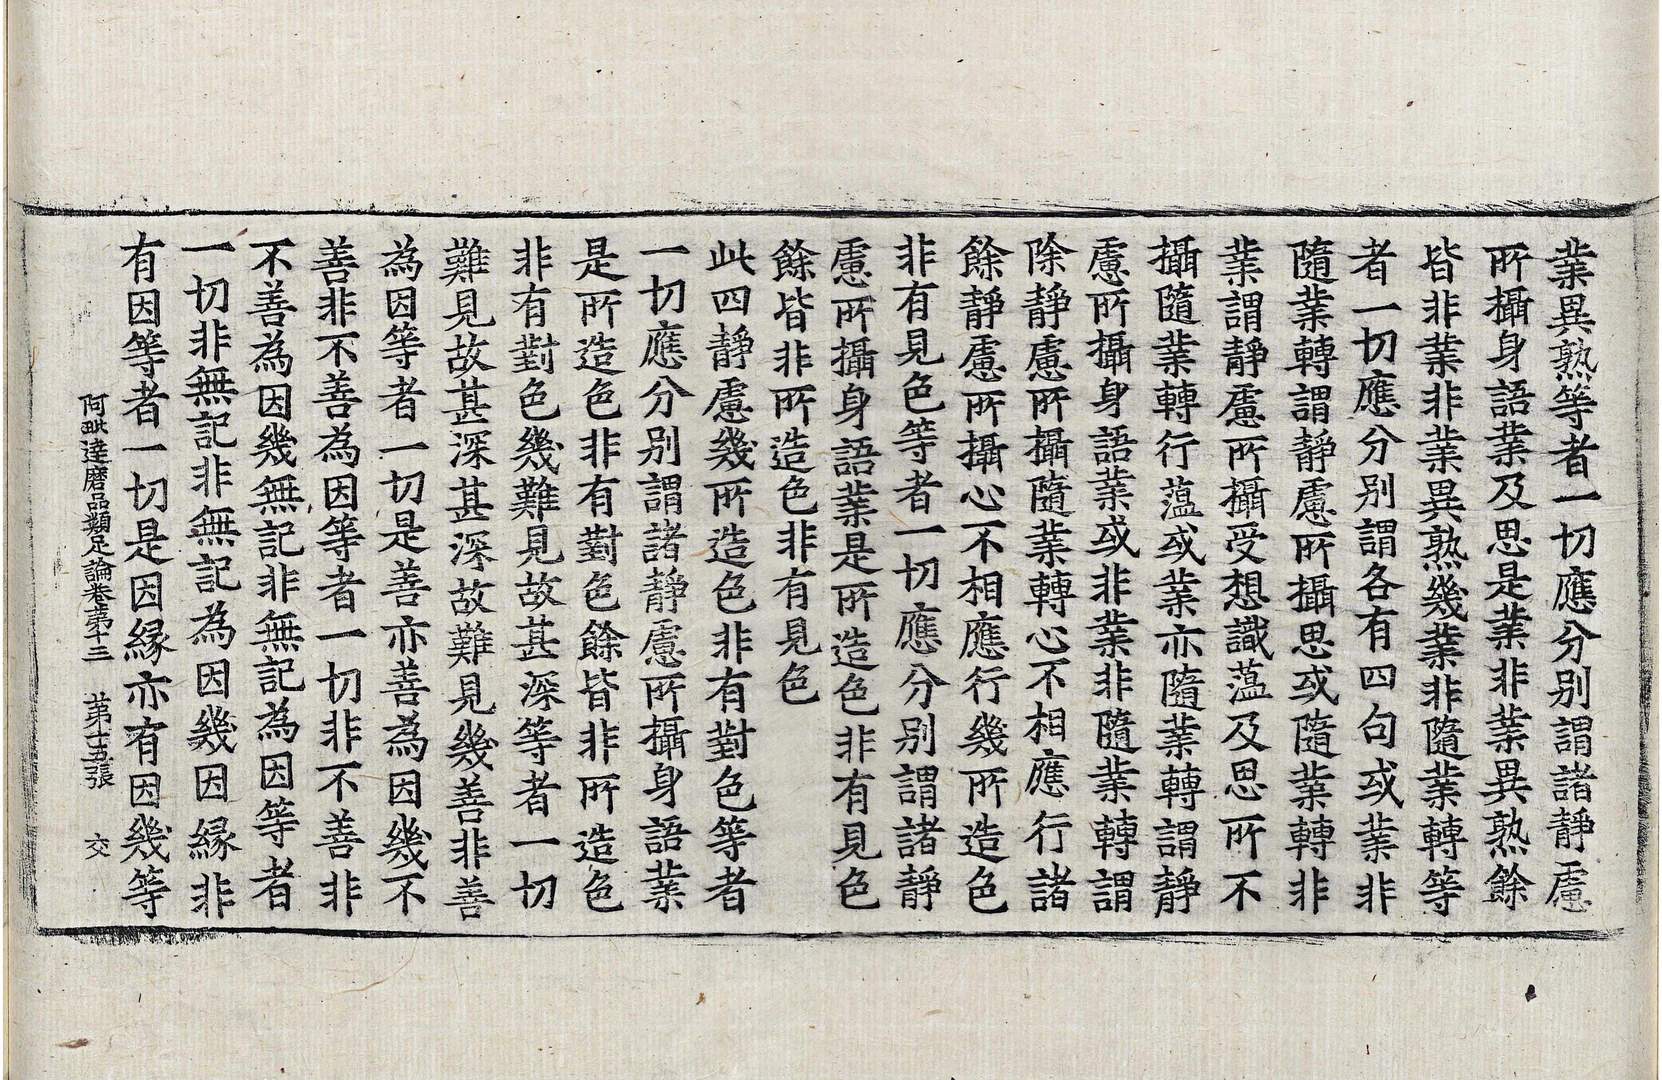 業異熟等者一切應分別謂諸靜慮
所攝身語業及思是業非業異熟餘
皆非業非業異熟幾業非隨業轉等
者一切應分別謂各有四句或業非
隨業轉謂靜慮所攝思或隨業轉非
業謂靜慮所攝受想識薀及思所不
攝隨業轉行薀或業亦隨業轉謂靜
慮所攝身語業或非業非隨業轉謂
除靜慮所攝隨業轉心不相應行諸
餘靜慮所攝心不相應行幾所造色
非有見色等者一切應分別謂諸靜
慮所攝身語業是所造色非有見色
餘皆非所造色非有見色
此四靜慮幾所造色非有對色等者
一切應分別謂諸靜慮所攝身語業
是所造色非有對色餘皆非所造色
非有對色幾難見故甚深等者一切
難見故甚深甚深故難見幾善非善
為因等者一切是善亦善為因幾不
善非不善為因等者一切非不善非
不善為因幾無記非無記為因等者
一切非無記非無記為因幾因緣非
有因等者一切是因緣亦有因幾等
阿毗達磨品類足論卷第十三　第十五張　交